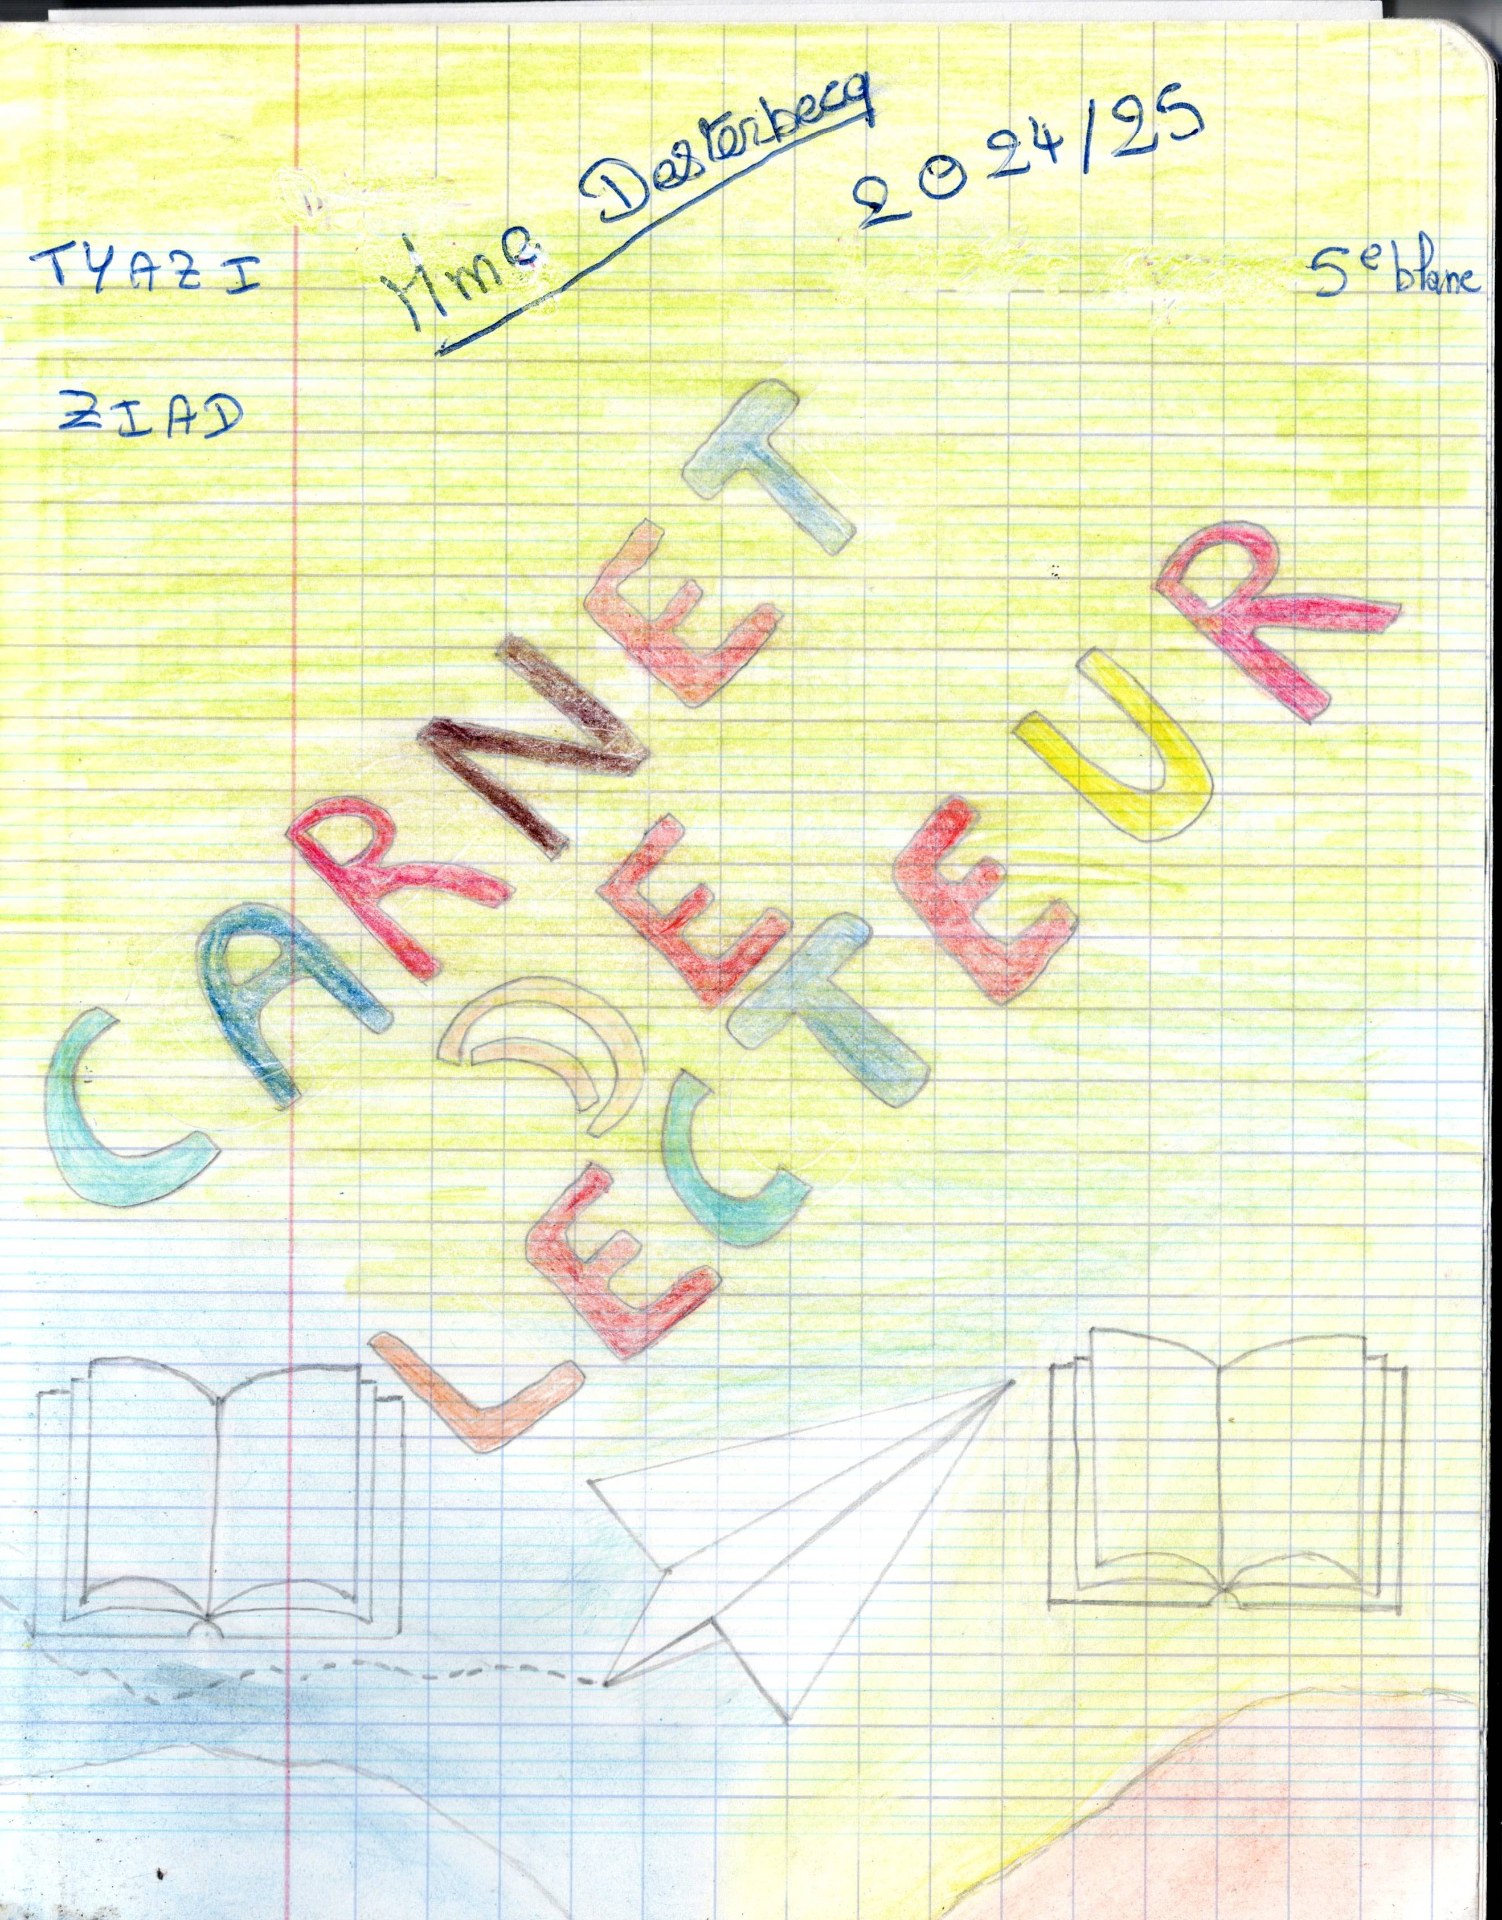 Mme Desterbecq
2024/25
TYAZI
5e blanc
ZIAD
CARNET
DE
LECTEUR